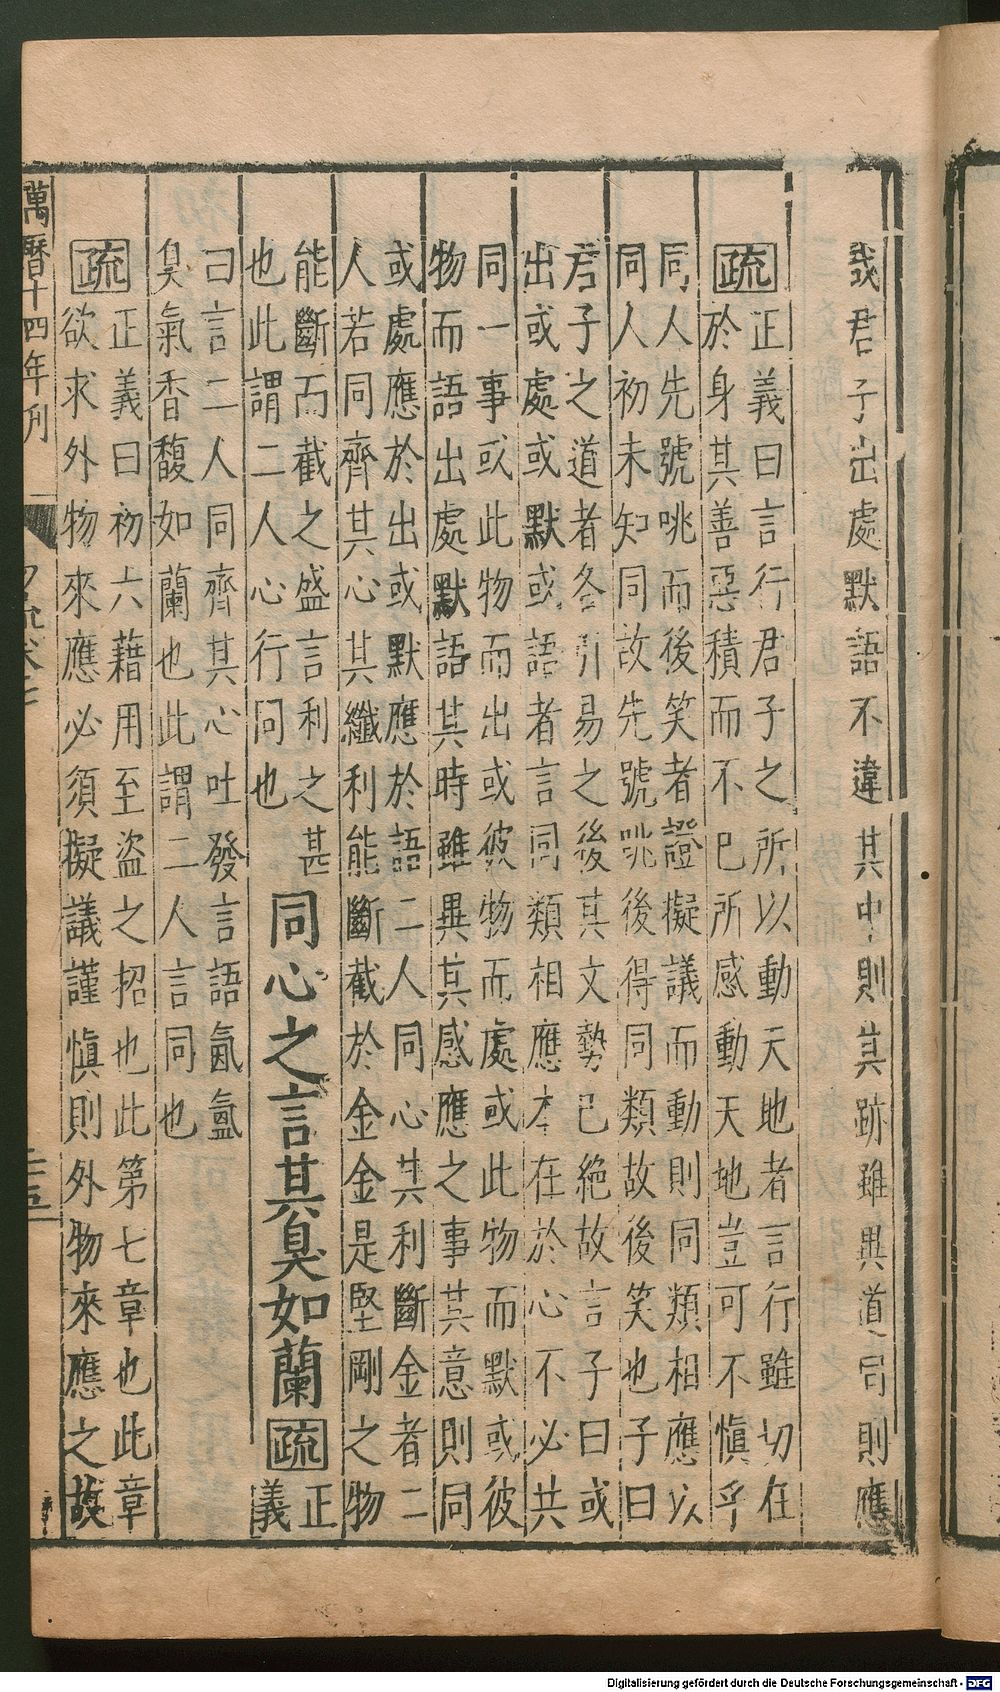 哉君子出處默語不違其中則其跡雖異道同則應
疏
正義曰言行君子之所以動天地者言行雖切在
於身其善惡積而不已所感動天地豈可不慎乎
同人先號咷而後笑者證擬議而動則同類相應以
同人初未知同故先號咷後得同類故後笑也子曰
君子之道者各引易之後其文勢已絕故言子曰或
出或處或默或語者言同類相應本在於心不必共
同一事或此物而出或彼物而處或此物而默或彼
物而語出處默語其時雖異其感應之事其意則同
或處應於出或默應於語二人同心其利斷金者二
人若同齊其心其纖利能斷截於金金是堅剛之物
能斷而截之盛言利之甚
也此謂二人心行同也
同心之言其臭如蘭
疏
正
義
曰言二人同齊其心吐發言語氤氳
臭氣香馥如蘭也此謂二人言同也
疏
正義曰初六藉用至盜之招也此第七章也此章
欲求外物來應必須擬議謹慎則外物來應之故
萬曆十四年刊
Digitalisierung gefördert durch die Deutsche Forschungsgemeinschaft - DFG